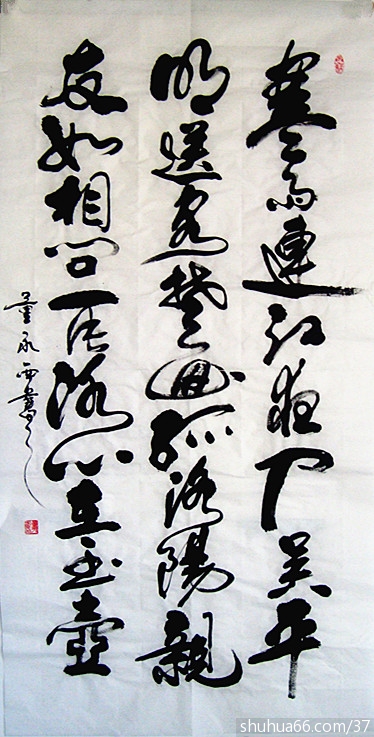 寒雨連江夜入吴平
明送客楚山孤洛陽親
友如相问一片冰心在玉壺
董永西書
shuhua66.com/37